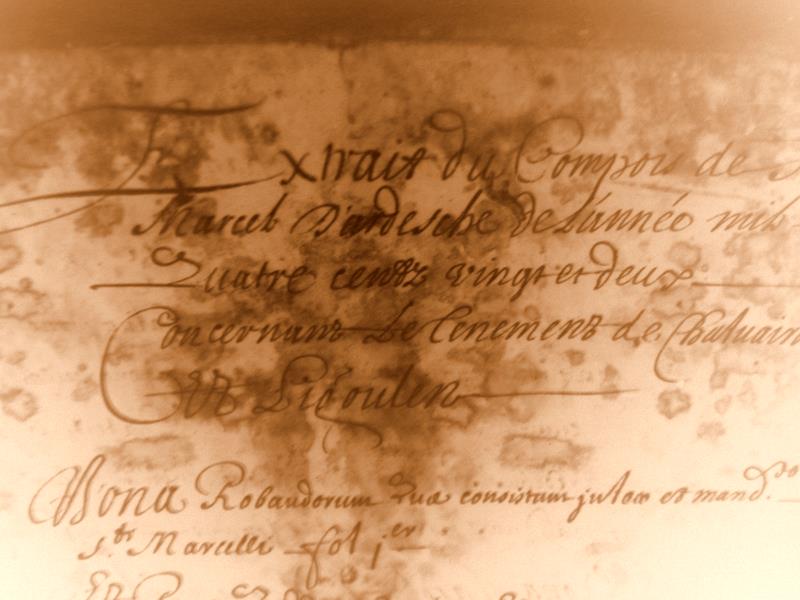 Extrait du Compois de S
Marcel D'ardesche de L'année mil
Quatre centz vingt et deux
Concernant Le tenement de Chalvain
Et Ligoulen
Bona Robaudorum quæ consistunt in loco et mand.to
s.ti Marcelli fol j.er